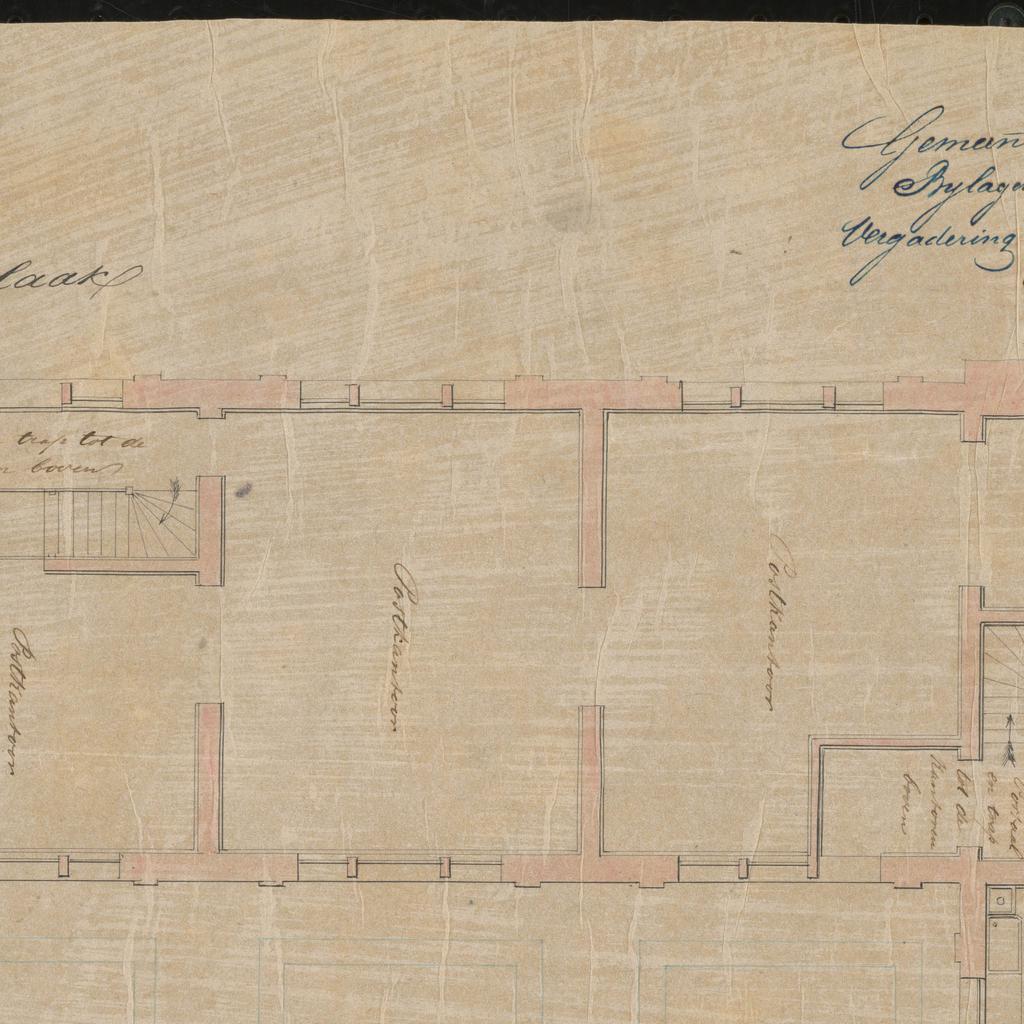 Bylage
Vergadering
laak
trap tot de
boven
Postkantoor
Postkantoor
Postkantoor
Portaal
en trap
tot de
Kantoren
boven